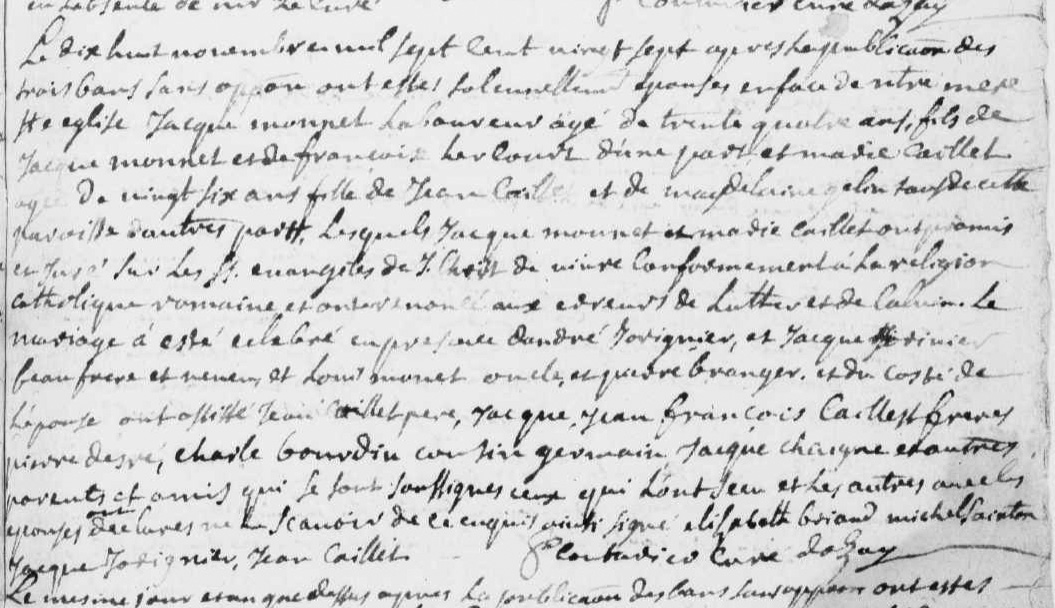 en l'absence de mr le curé
curé dazay
Le dix huit novembre mil sept cent vingt sept apres la publicaõn des
trois bans sans oppõn ont estes solennellemt epouses en face de ntre mere
Ste eglise Jacque monnet laboureur agé de trente quatre ans, fils de
Jacque monnet et de francoise d'une part et marie Caillet
agee de vingt six ans fille de Jean Caillet et de magdelaine gelin tous de cette
paroisse d'autres part. Lesquels Jacque monnet et marie Caillet ont promis
et Juré sur Les Sts. evangiles de J. Christ de vivre Conformement á La religion
catholique romaine, et ont renoncé aux erreurs de Luther et de Calvin. Le
mariage á esté celebré en presence dandré Jorignier, et Jacque
beau frere et neveu, et Louis monet oncle, et pierre branger. et du costé de
L'epouse ont assisté Jean Caillet pere, Jacque, Jean françois Caillet freres
pierre desré, charle bourdin cousin germain Jacque chaigne et autres
parents et amis qui se sont soussignes ceux qui L'ont sceu et les autres avec les
epouses ont declares ne le scavoir de ce enquis ainsi signé elisabeth briand michel Sainton
Jacque Jorignier, Jean Caillet. curé dazay
Le mesme jour et an que dessus apres La publicaõn des bans sans oppõn ont estes